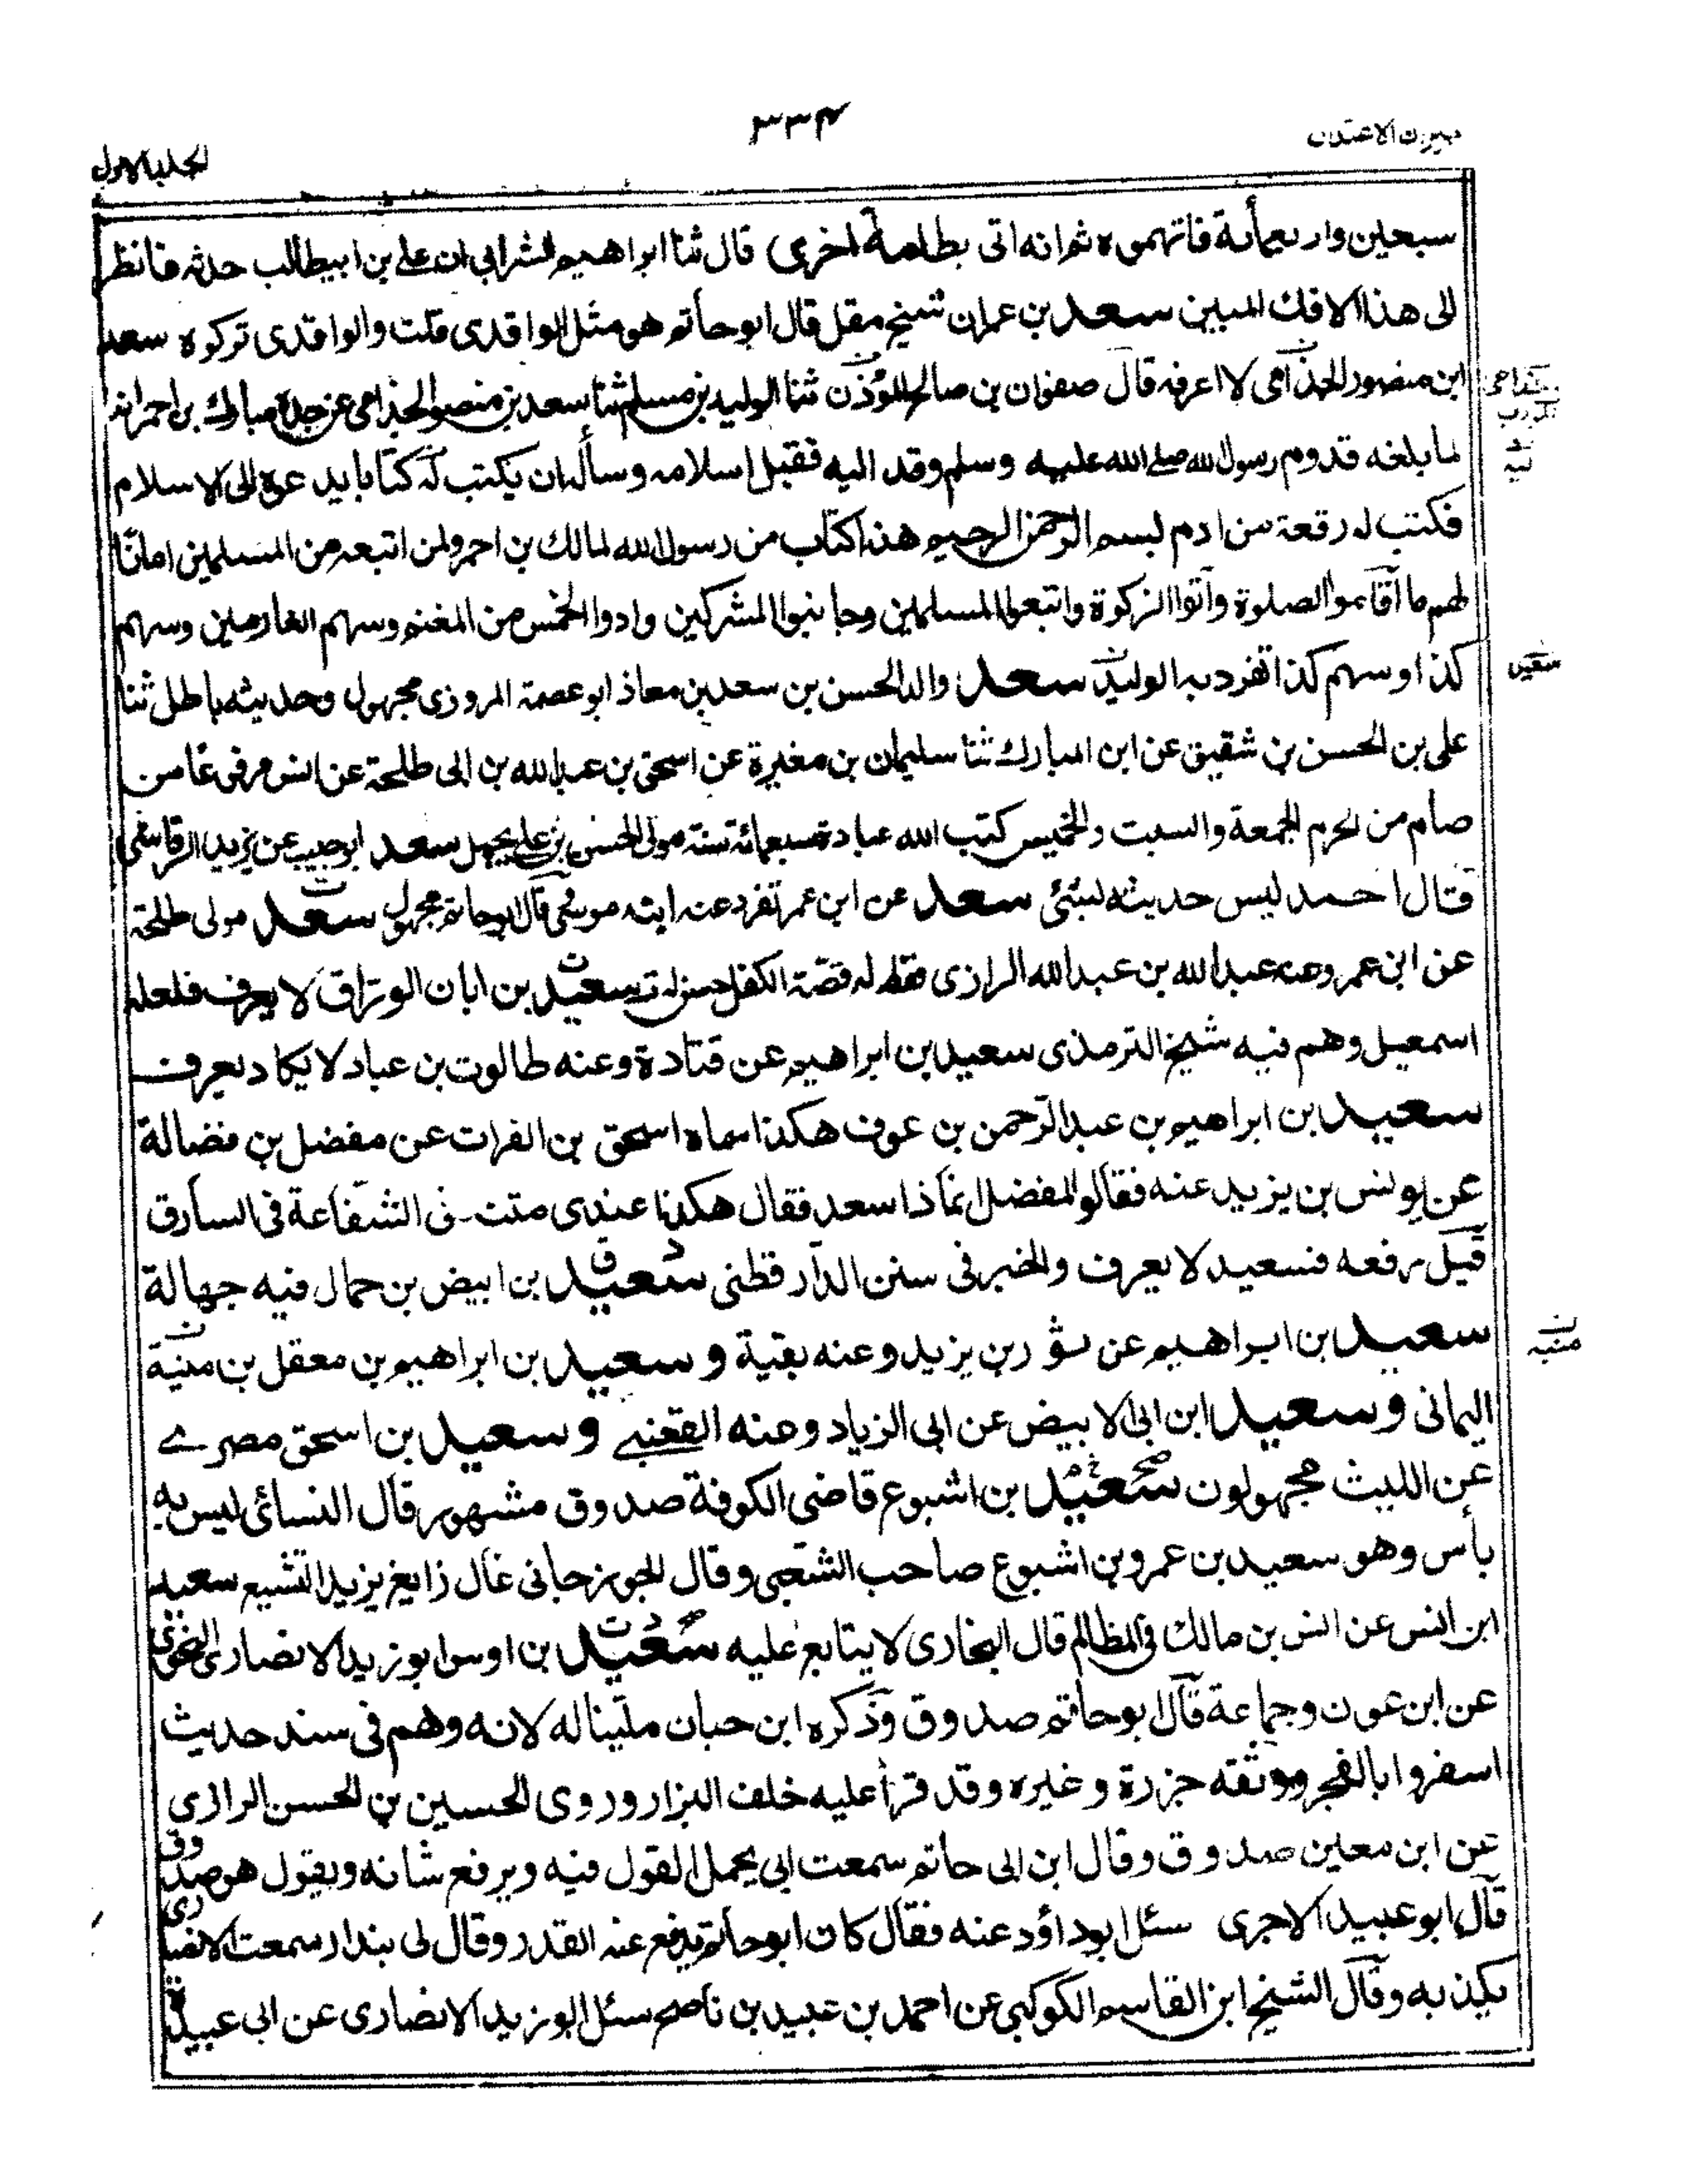 ميزان الاعتدال
۳۳۴
الجلد الاول
سبعين واربعمأية فاتهموه ثم انه اتى بطامة اخرى قال ثنا ابراهيم الشرابي ان علي بن ابيطالب حدثه فانظر
الى هذا الافك المبين سعد بن عمران شيخ مقل قال ابو حاتم هو مثل الواقدى قلت والواقدى تركوه سعد
ابن منصور الجذامى لا اعرفه قال صفوان بن صالح المؤذن ثنا الوليد بن مسلم ثنا سعد بن منصور الجذامى عن جده مبارك بن احمر انه
لما بلغه قدوم رسول الله صلى الله عليه وسلم وفد اليه فقبل اسلامه وسأله ان يكتب له كتابا يدعوه الى الاسلام
فكتب له رقعة من ادم بسم الله الرحمن الرحيم هذا كتاب من رسول الله لمالك بن احمر ولمن اتبعه من المسلمين امانا
لهم ما أقاموا الصلوة وآتوا الزكوة واتبعوا المسلمين وجانبوا المشركين وادوا الخمس من المغنم وسهم الغارمين وسهم
كذا وسهم كذا تفرد به الوليد سعد والد الحسن بن سعد بن معاذ ابو عصمة المروزى مجهول وحديثه باطل ثنا
على بن الحسن بن شقيق عن ابن المبارك ثنا سليمان بن مغيرة عن اسحق بن عبد الله بن ابى طلحة عن انس مرفوعا من
صام من الحرم الجمعة والسبت والخميس كتب الله عبادة سبعمائة سنة مولى الحسن بن على يجهل سعد ابو حبيب عن يزيد الرقاشي
قال احمد ليس حديثه بشئ سعد عن ابن عمر تفرد عنه ابنه موسى قال ابو حاتم مجهول سعد مولى طلحة
عن ابن عمر وعنه عبد الله بن عبد الله الرازى فقط له قصة الكفل سعيد بن ابان الوراق لا يعرف فلعله
اسمعيل وهم فيه شيخ الترمذى سعيد بن ابراهيم عن قتادة وعنه طالوت بن عباد لا يكاد يعرف
سعيد بن ابراهيم بن عبد الرحمن بن عوف هكذا سماه اسحق بن الفرات عن مفضل بن فضالة
عن يونس بن يزيد عنه فقالوا لمفضل انما ذا سعد فقال هكذا عندى متنه فى الشفاعة فى السارق
قبل رفعه فسعيد لا يعرف والخبر فى سنن الدار قطنى سعيد بن ابيض بن حمال فيه جهالة
سعيد بن ابراهيم عن ثور بن يزيد وعنه بقية و سعيد بن ابراهيم بن معقل بن منية
اليمانى و سعيد ابن ابى الابيض عن ابى الزياد وعنه القعنبي و سعيد بن اسحق مصرے
عن الليث مجهولون سعيد بن اشبوع قاضى الكوفة صدوق مشهور قال النسائى ليس به
بأس وهو سعيد بن عمرو بن اشبوع صاحب الشعبى وقال الجوزجانى غال زايغ يزيد التشيع سعيد
ابن انس عن انس بن مالك فى المظالم قال البخارى لا يتابع عليه سعيد بن اوس ابو زيد الانصارى النحوى
عن ابن عون وجماعة قال ابو حاتم صدوق وذكره ابن حبان ملينا له لانه وهم فى سند حديث
اسفروا بالفجر ووثقه جزرة وغيره وقد قرأ عليه خلف البزار وروى الحسين بن الحسن الرازى
عن ابن معين صدوق وقال ابن ابى حاتم سمعت ابى يجمل القول فيه ويرفع شانه ويقول هو صدوق
قال ابو عبيد الاجرى سئل ابو داؤد عنه فقال كان ابو حاتم يدفع عنه القدر وقال لى بندار سمعت الانصارى
يكذبه وقال الشيخ ابن القاسم الكوكبى عن احمد بن عبيد بن ناصح سئل ابو زيد الانصارى عن ابى عبيدة
منبه